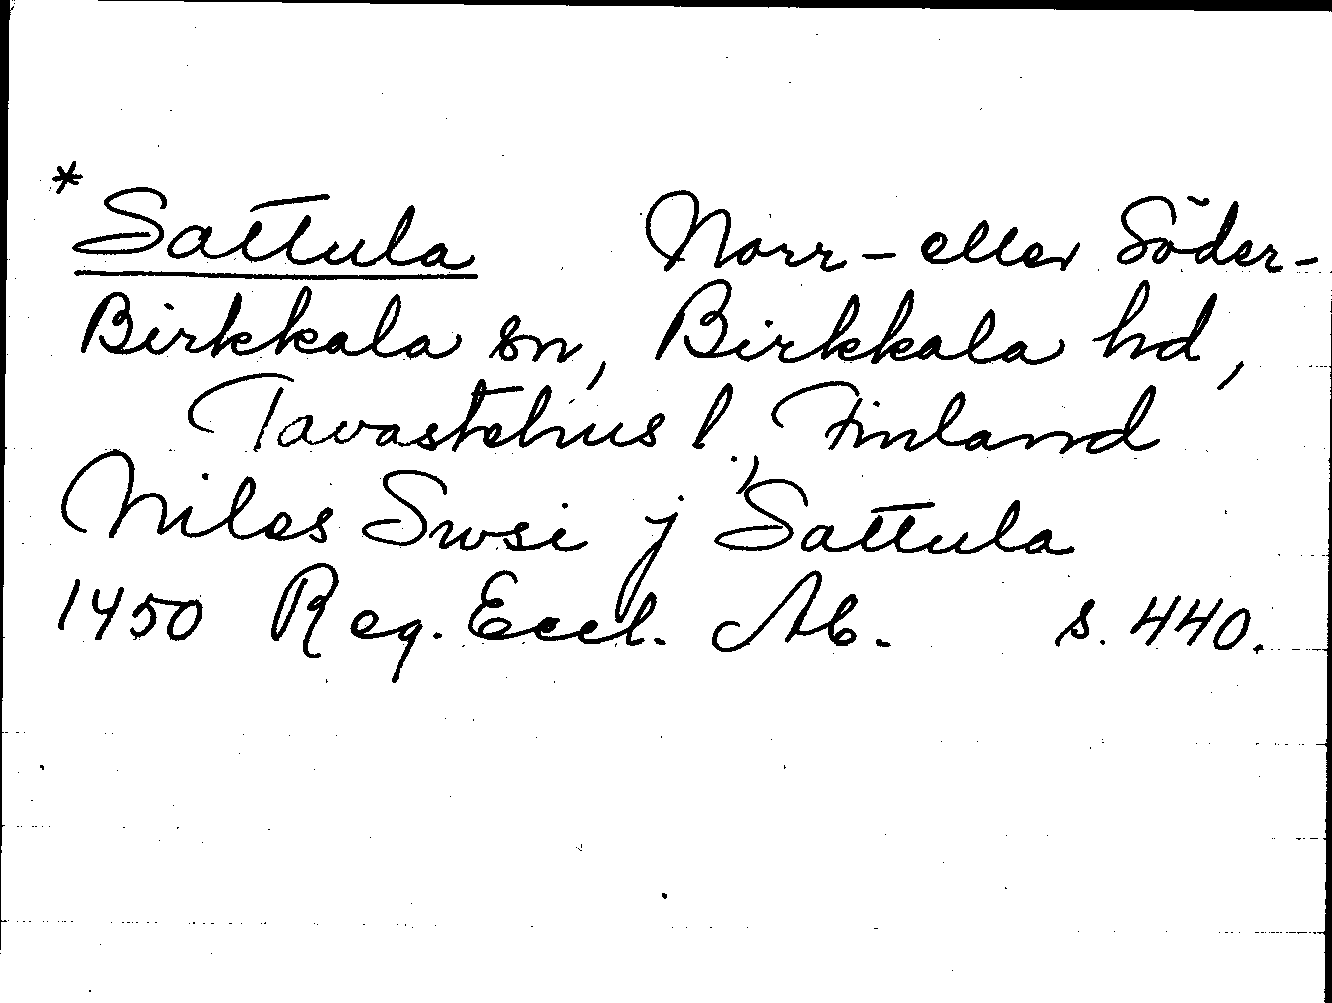 * Sattula Norr- eller Söder-
Birkkala sn, Birkkala hd,
Tavastehus l., Finland
Niles Swsi j Sattula
1450 Reg. Eccl. Ab. s. 440.